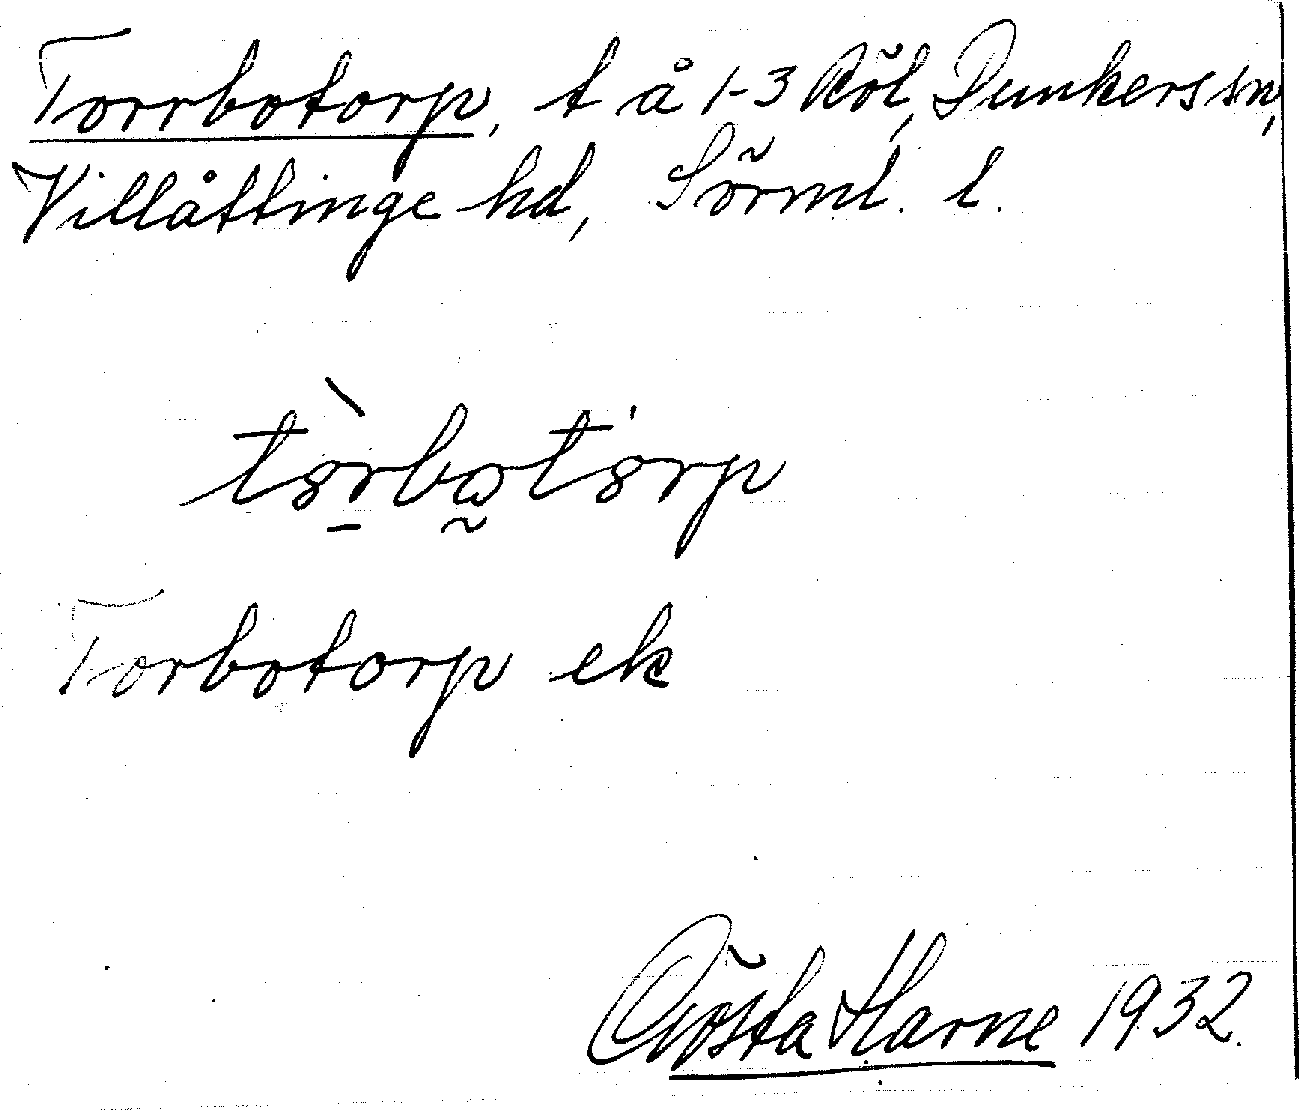 Torrbotorp, t å 1-3 Röl, Dunkers sn,
Villåttinge hd, Sörml. l.
Torbotorp ek
Gösta Harne 1932.